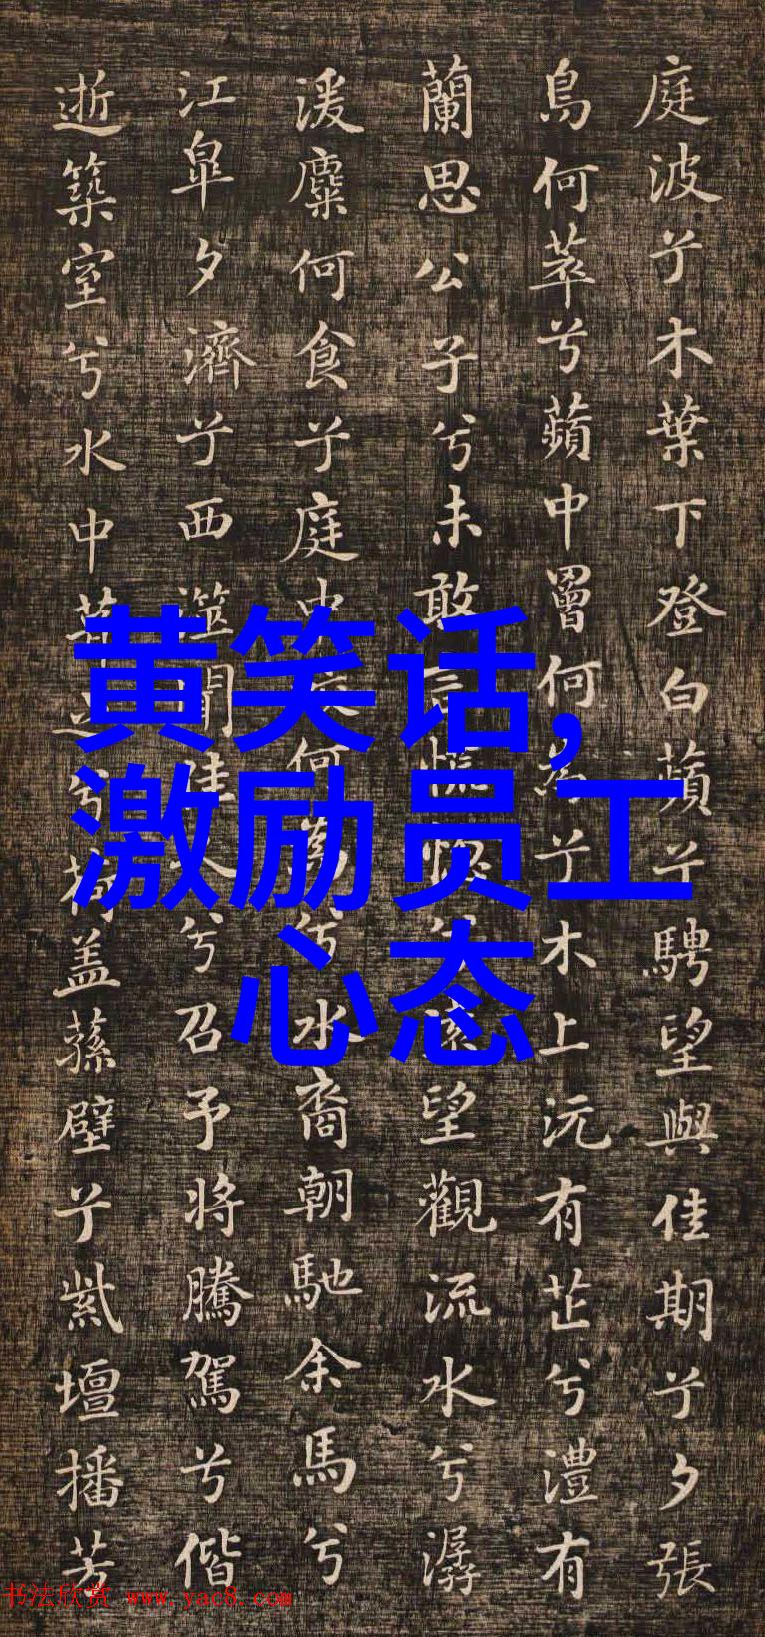 庭波兮木葉下登白蘋兮騁望與佳期兮夕張
鳥何萃兮蘋中罾何為兮木上沅有芷兮澧有
蘭思公子兮未敢言慌惚兮遠望觀流水兮潺
湲麋何食兮庭中蛟何為兮水裔朝馳余馬兮
江皋夕濟兮西澨聞佳人兮召予將騰駕兮偕
逝築室兮水中葺之兮荷盖蓀壁兮紫壇播芳
黄笑话,
激励员工
心态
书法欣赏 www.yac8.com